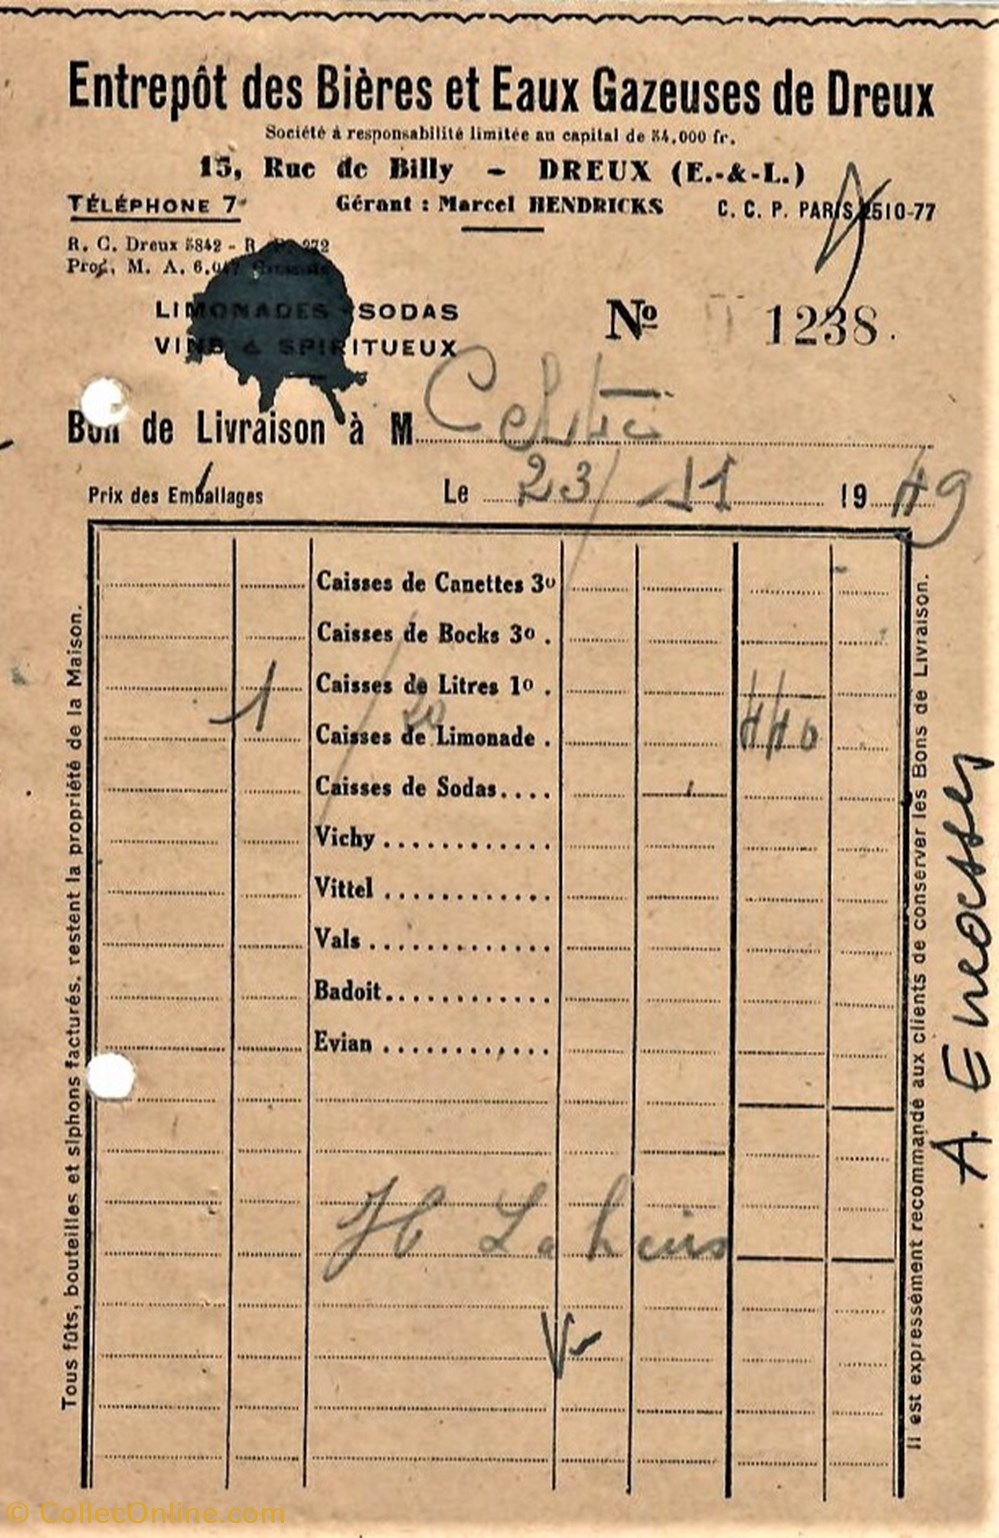 Entrepôt des Bières et Eaux Gazeuses de Dreux
Société à responsabilité limitée au capital de 54.000 fr.
15, Rue de Billy - DREUX (E.-&-L.)
TÉLÉPHONE 7 Gérant : Marcel HENDRICKS C. C. P. PARIS 2510-77
R. C. Dreux 5842 - R. 272
Prod. M. A.
LIMONADES - SODAS
VINS & SPIRITUEUX
Nº 1238.
Bon de Livraison à M
Prix des Emballages Le 23/11 1949
Caisses de Canettes 3º
Caisses de Bocks 3º .
Caisses de Litres 1º .
1 20 440
Caisses de Limonade .
Caisses de Sodas....
Vichy ............
Vittel ............
Vals .............
Badoit.............
Evian ............
Tous fûts, bouteilles et siphons facturés, restent la propriété de la Maison.
Il est expressément recommandé aux clients de conserver les Bons de Livraison.
A Encaisser
© CollecOnline.com